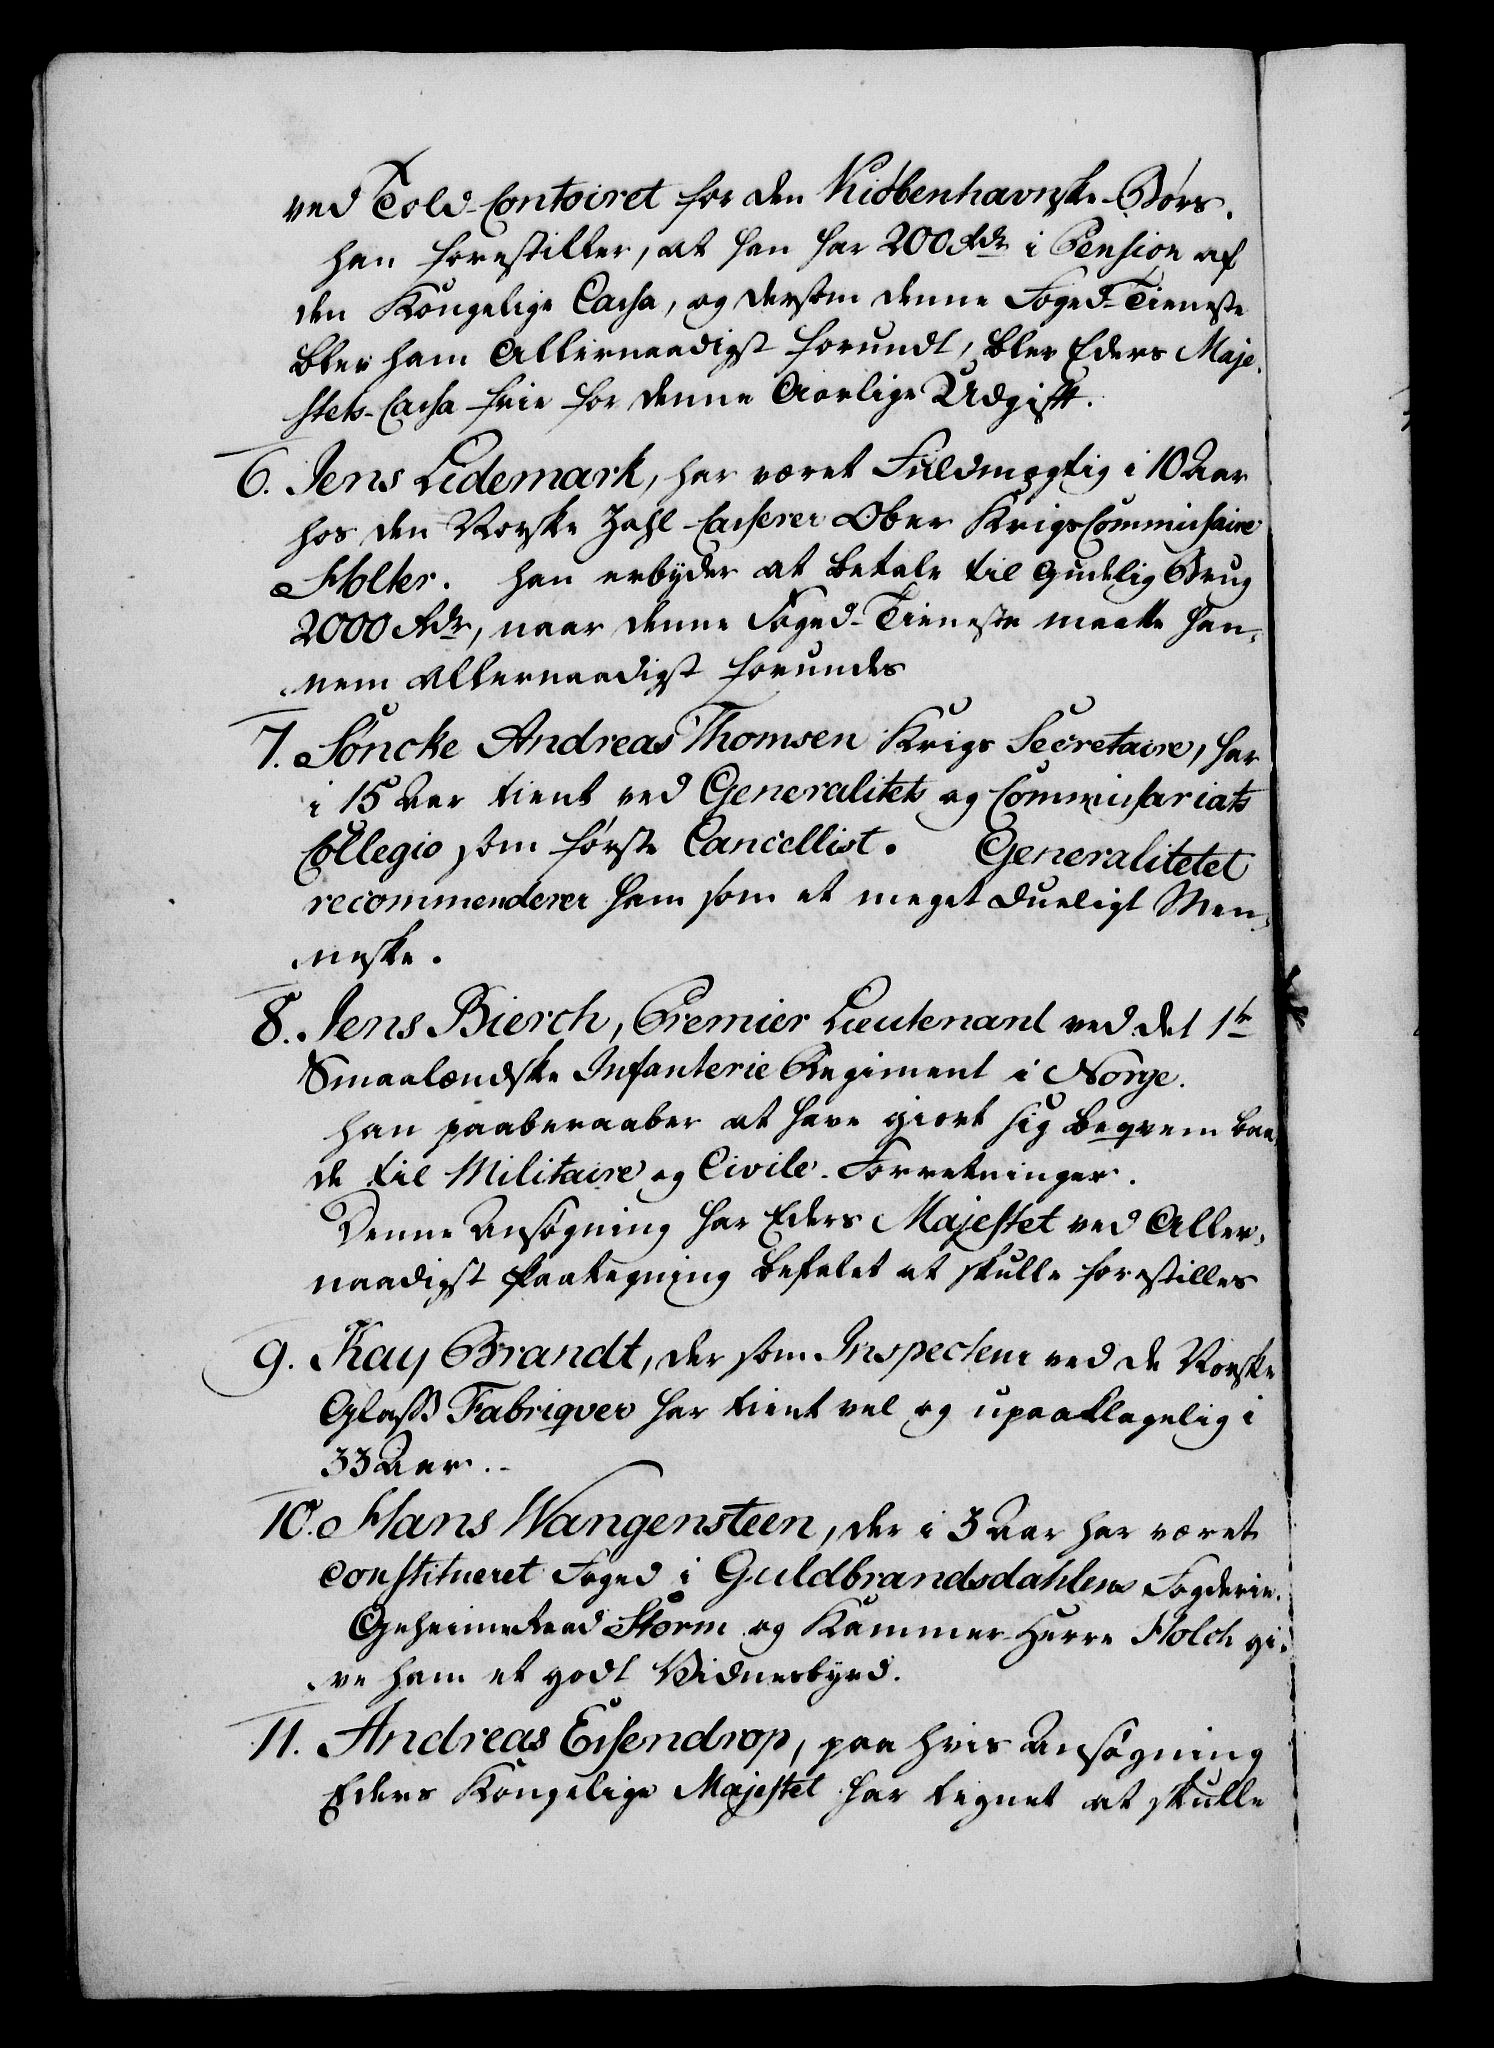 ved Told-Contoiret for den Kiöbenhavnske-Börs.
han forestiller, at han har 200 Rdr i Pension af
den Kongelige Cassa, og dersom denne Foged-Tieneste
blev ham Allernaadigst forundt, blev Eders Maje-
stets-Cassa frie for denne Aarlige Udgift.
6. Jens Lidemark, har været Fuldmægtig i 10 Aar
hos den Norske Zahl-Casserer Ober Krigs Commissaire
Holter. han erbyder at betale til gudelig Brug
2000 Rdr, naar denne Foged-Tieneste maatte han-
nem Allernaadigst forundes
7. Söncke Andreas Thomsen Krigs Secretaire, har
i 15 Aar tient ved Generalitets og Commissariats
Collegio som förste Cancellist. Generalitetet
recommenderer ham som et meget dueligt Men-
neske.
8. Jens Bierch, Premier Lieutenant ved det 1te
Smaalændske Infanterie Regiment i Norge.
han paaberaaber at have giort sig beqvem baa-
de til Militaire og Civile-Forretninger.
Denne Ansögning har Eders Majestet ved Aller-
naadigst Paategning befalet at skulle forestilles
9. Kay Brandt, der som Inspecteur ved de Norske
Glass Fabriqver har tient vel og upaaklagelig i
33 Aar.
10. Hans Wangensteen, der i 3 Aar har været
constitueret Foged i Guldbrandsdahlens Fogderie.
Geheimeraad Storm og Kammer-Herre Holch gi-
ve ham et godt Vidnesbyrd.
11. Andreas Eisendrop, paa hvis Ansögning
Eders Kongelige Majestet har tegnet at skulle